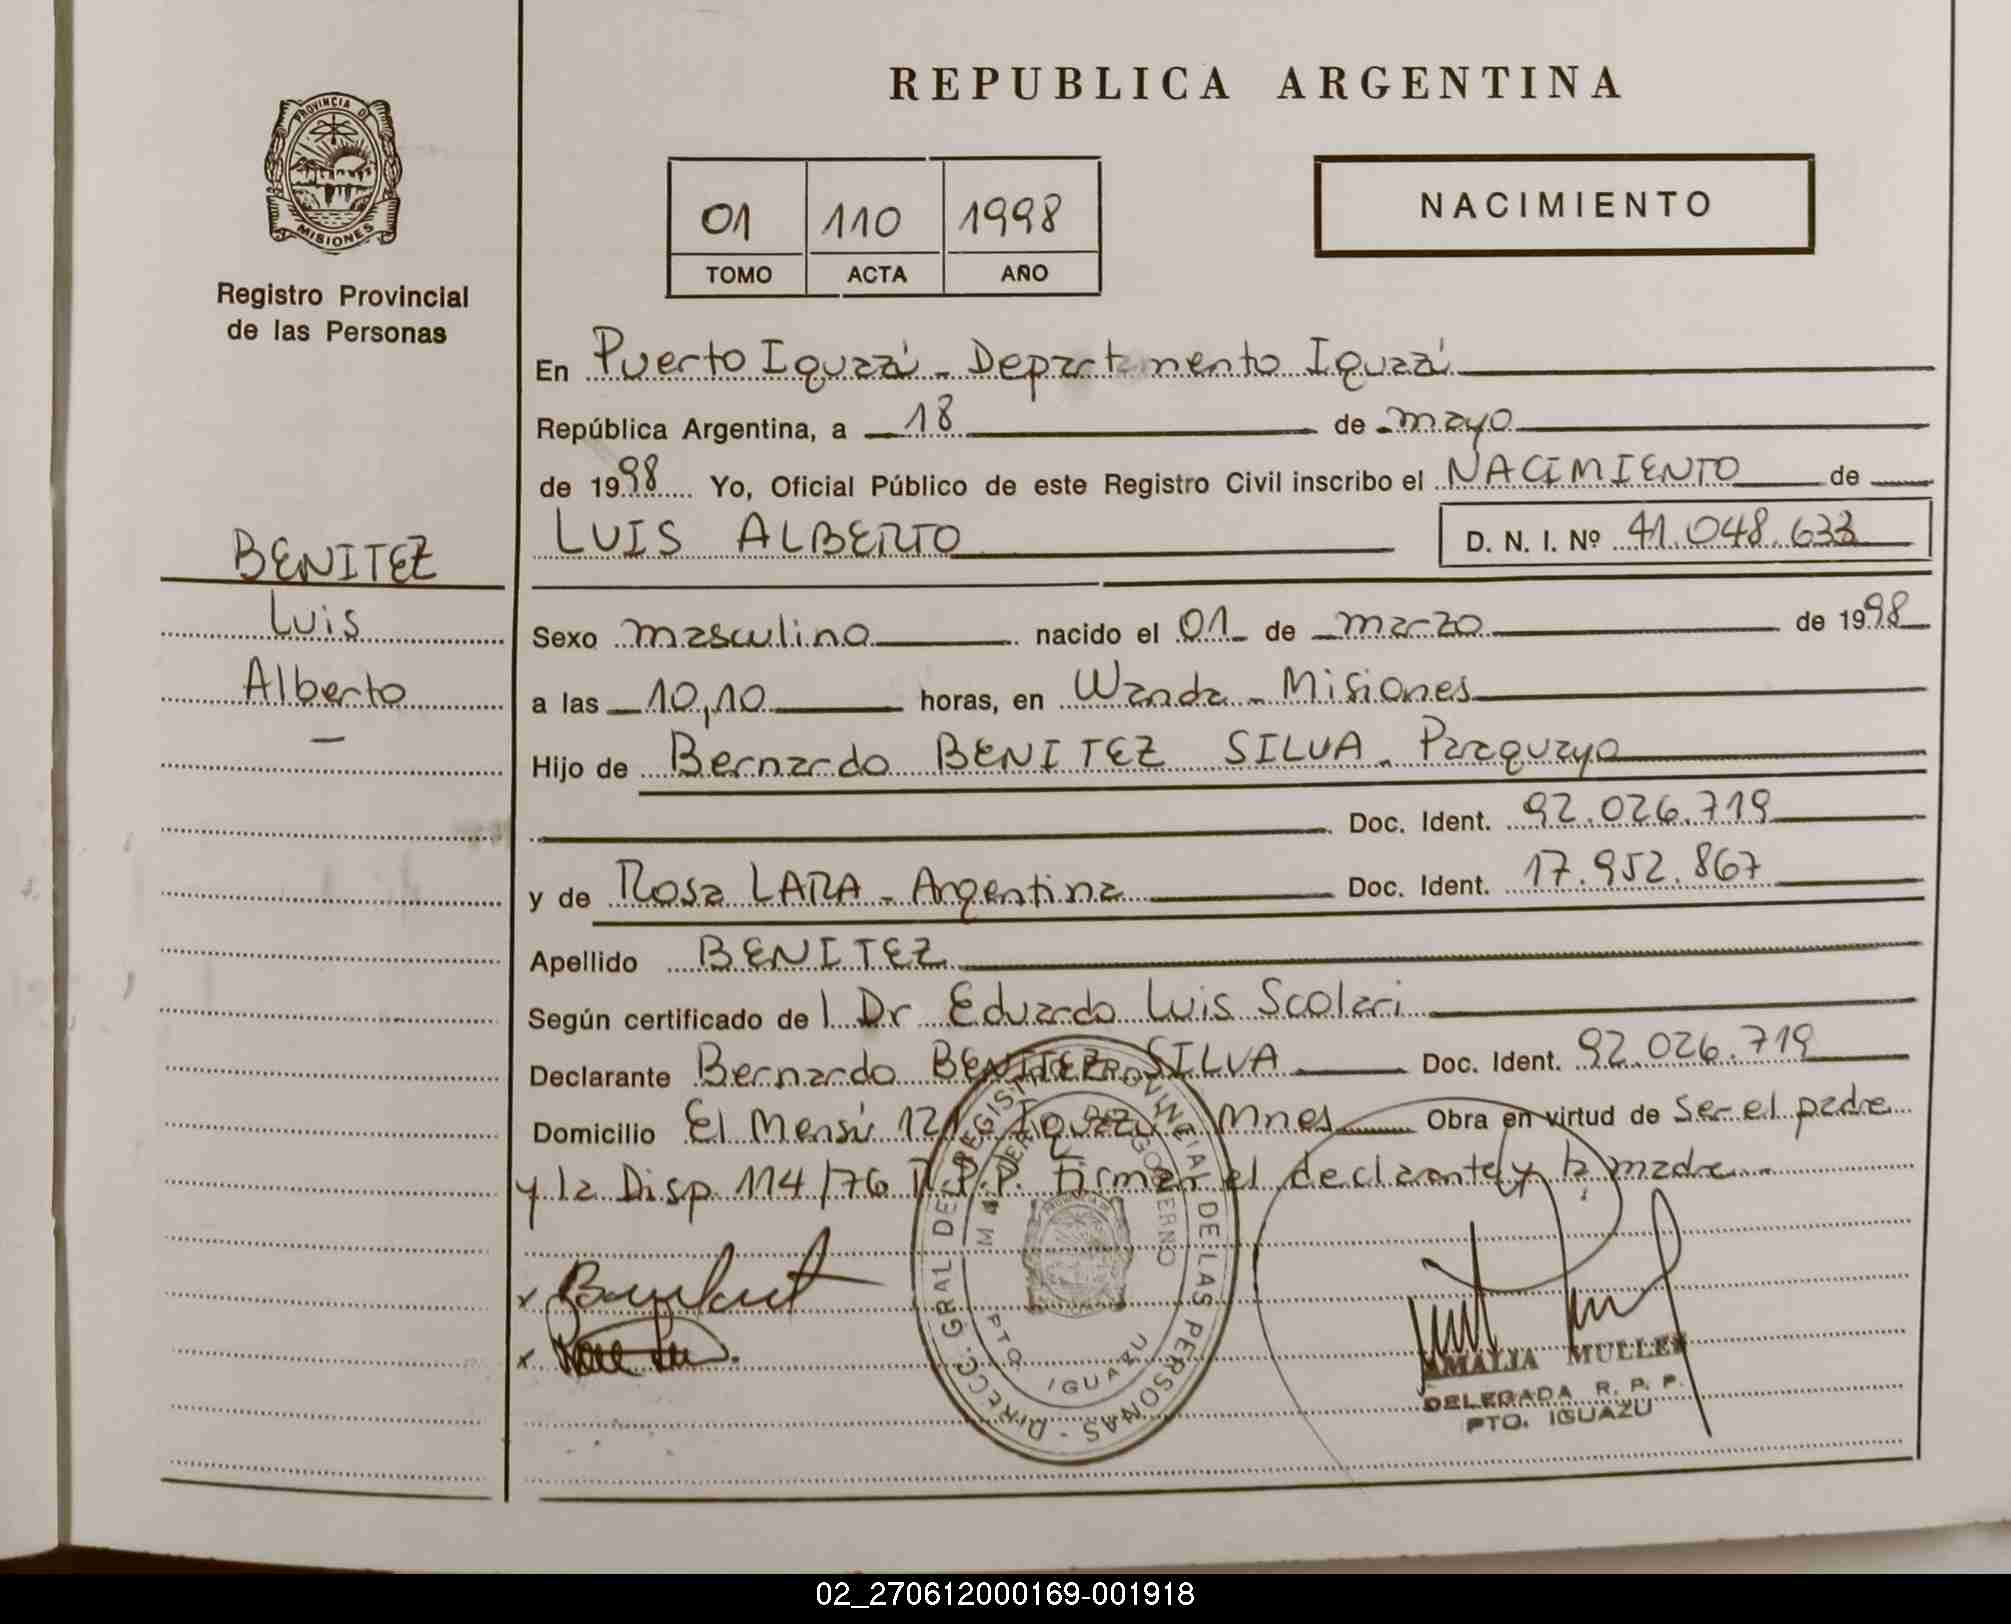 REPUBLICA ARGENTINA
PROVINCIA DE
MISIONES
Registro Provincial
de las Personas
01 110 1998
TOMO ACTA AÑO
NACIMIENTO
En Puerto Iguazú - Departamento Iguazú
República Argentina, a 18 de mayo
de 1998 Yo, Oficial Público de este Registro Civil inscribo el NACIMIENTO de
LUIS ALBERTO D. N. I. Nº 41.048.633
BENITEZ
Luis
Alberto
Sexo masculino nacido el 01 de marzo de 1998
a las 10,10 horas, en Wanda - Misiones
Hijo de Bernardo BENITEZ SILVA - Paraguayo
Doc. Ident. 92.026.719
y de Rosa LARA - Argentina Doc. Ident. 17.952.867
Apellido BENITEZ
Según certificado del Dr Eduardo Luis Scolari
Declarante Bernardo BENITEZ SILVA Doc. Ident. 92.026.719
Domicilio El Mensú 121 Iguazú - Mnes Obra en virtud de ser el padre
y la Disp 114/76 R.P.P. Firman el declarante y la madre -
DIRECC. GRAL DE REGISTRO PROVINCIAL DE LAS PERSONAS -
GOBIERNO
PTO. IGUAZU
AMALIA MULLER
DELEGADA R. P. P.
PTO. IGUAZU
02_270612000169-001918